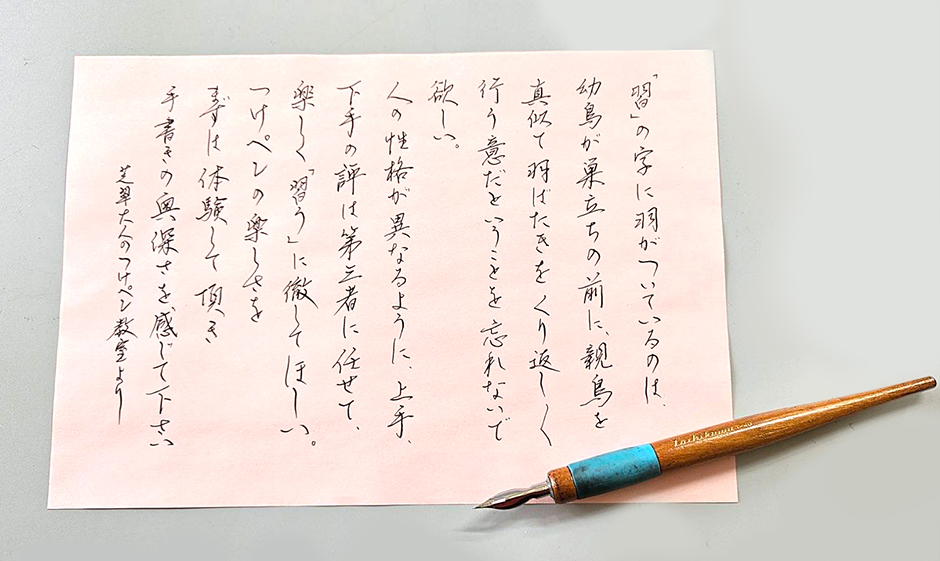 「習」の字に羽がついているのは、
幼鳥が巣立ちの前に、親鳥を
真似て羽ばたきをくり返しく
行う意だということを忘れないで
欲しい。
人の性格が異なるように、上手、
下手の評は第三者に任せて、
楽しく「習う」に徹してほしい。
つけペンの楽しさを
まずは体験して頂き
手書きの奥深さを感じて下さい
芝翠大人のつけペン教室より
Tachikawa